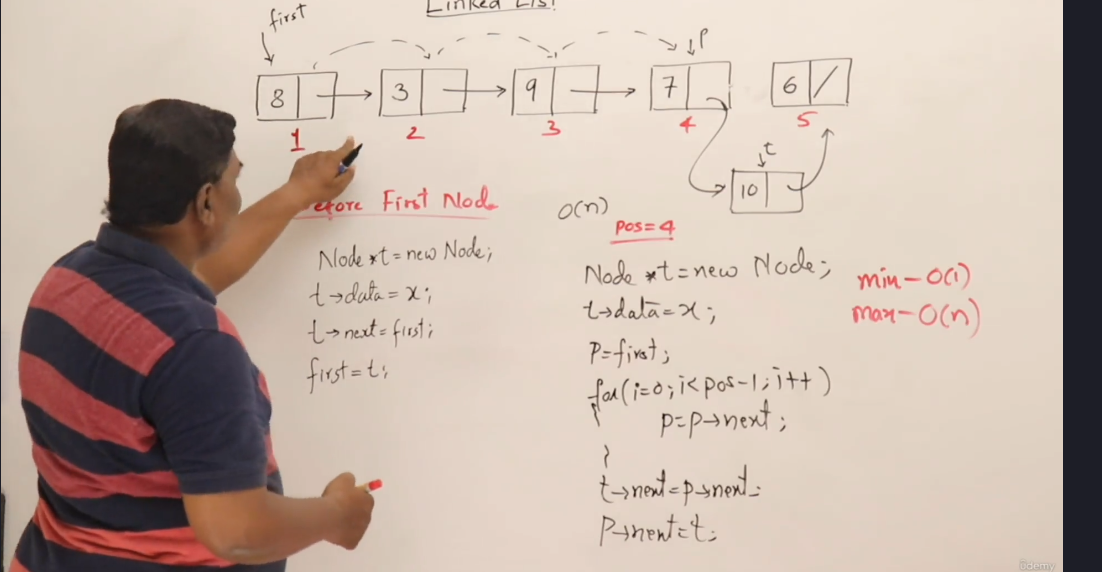 Linked List
first
P
8
3
9
7
6
1
2
3
4
5
t
10
efore First Node
O(n)
pos=4
Node *t=new Node;
t→data=x;
t→next=first;
first=t;
Node *t=new Node;
t→data=x;
P=first;
for(i=0;i<pos-1;i++)
{
p=p→next;
}
t→next=p→next;
P→next=t;
min-O(1)
max-O(n)
ûdemy